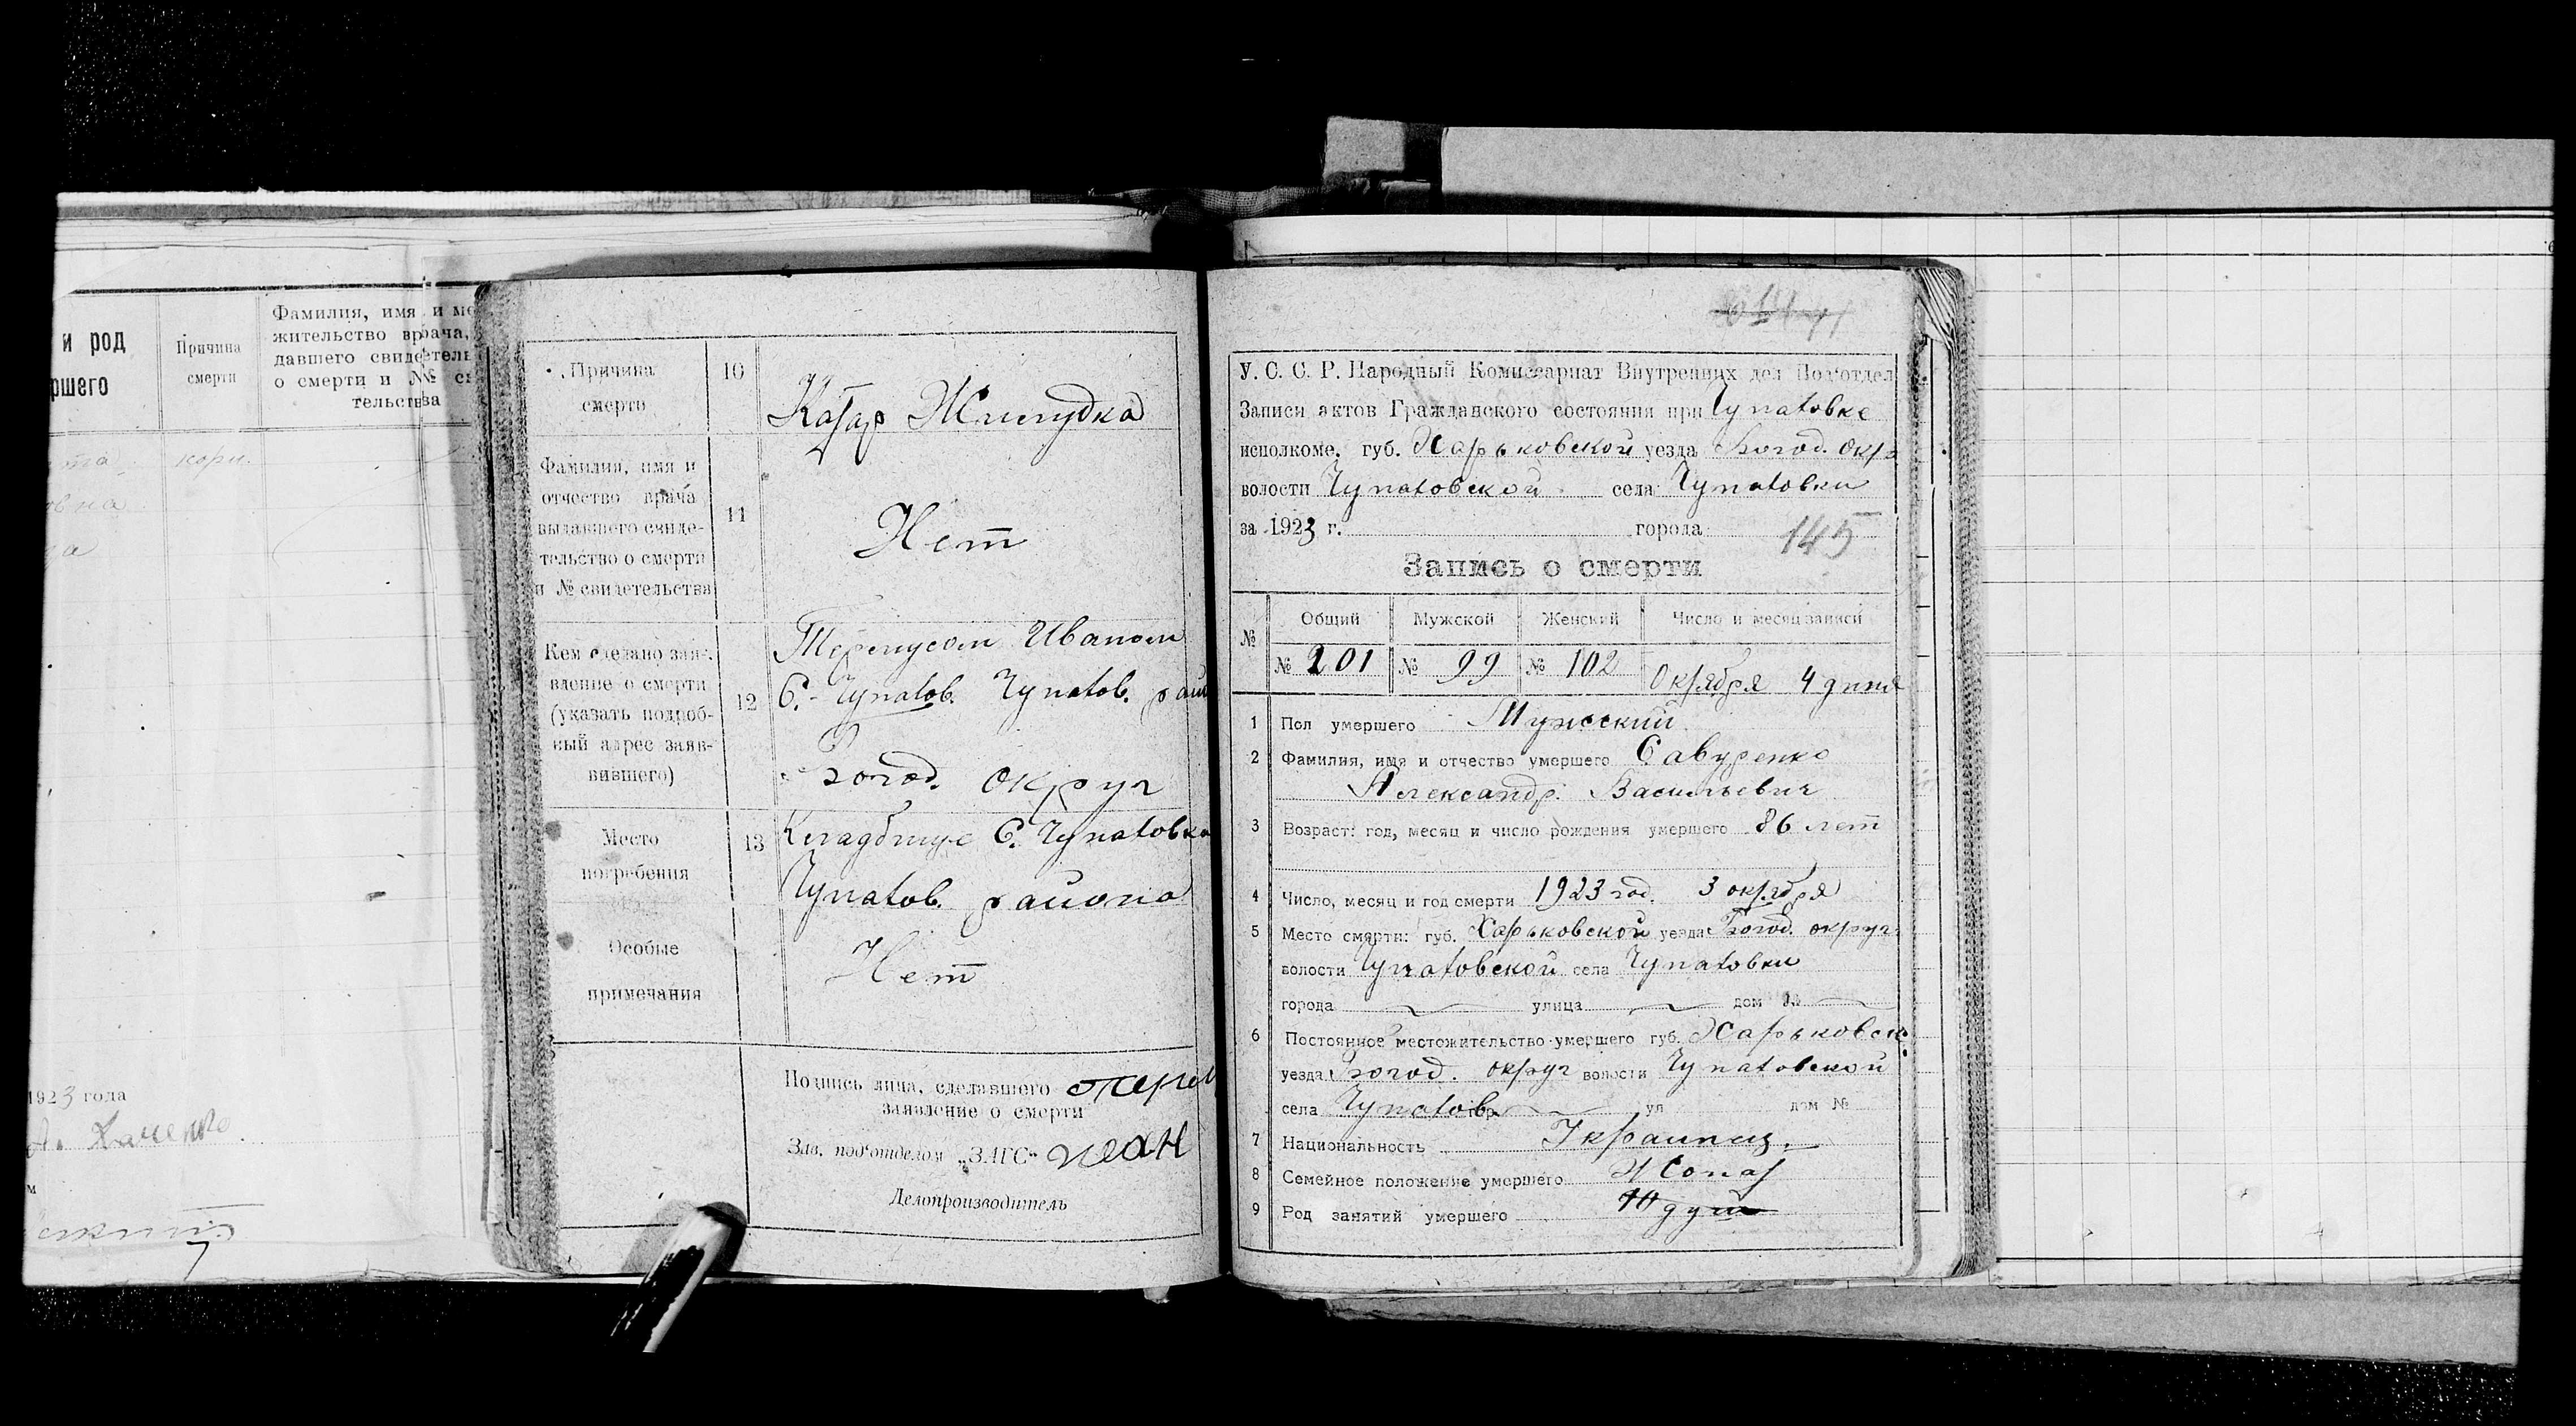 и род
ршего
Причина
смерти
Фамилия, имя и ме
жительство врача,
давшего свидетель
о смерти и № св
тельства
1923 года
Причина
смерти
10
Катар Жилудка
Фамилия, имя и
отчество врача
выдавшего свиде-
тельство о смерти
и № свидетельства
11
Нет
Кем сделано заяв-
вление о смерти
(указать подроб-
ный адрес заяв-
вившего)
12
Иваном
С. Чупатов. Чупатов. рай
Богод. округ
Место
погребения
13
Кладбище С. Чупатовка
Чупатов. района
Особые
примечания
Нет
Подпись лица, сделавшего
заявление о смерти
Зав. под'отделом „ЗАГС“
Делопроизводитель
У. С. С. Р. Народный Комиссариат Внутренних дел Под'отдел
Записи актов Гражданского состояния при Чупатовке
исполкоме. губ. Харьковской уезда Богод. окр
волости Чупатовской села Чупатовки
за 1923 г. города
145
Запись о смерти
№
Общий
Мужской
Женский
Число и месяц записи
№ 201
№ 99
№ 102
Октября 4 дния
1 Пол умершего Мужский
2 Фамилия, имя и отчество умершего Савуренко
Александр. Васильевич
3 Возраст: год, месяц и число рождения умершего 86 лет
4 Число, месяц и год смерти 1923 год. 3 октября
5 Место смерти: губ. Харьковской уезда Богод. округ
волости Чупатовской села Чупатовки
города улица дом №
6 Постоянное местожительство умершего губ. Харьковск
уезда Богод. округ волости Чупатовской
села Чупатов гор. ул дом №
7 Национальность Украинец.
8 Семейное положение умершего
9 Род занятий умершего